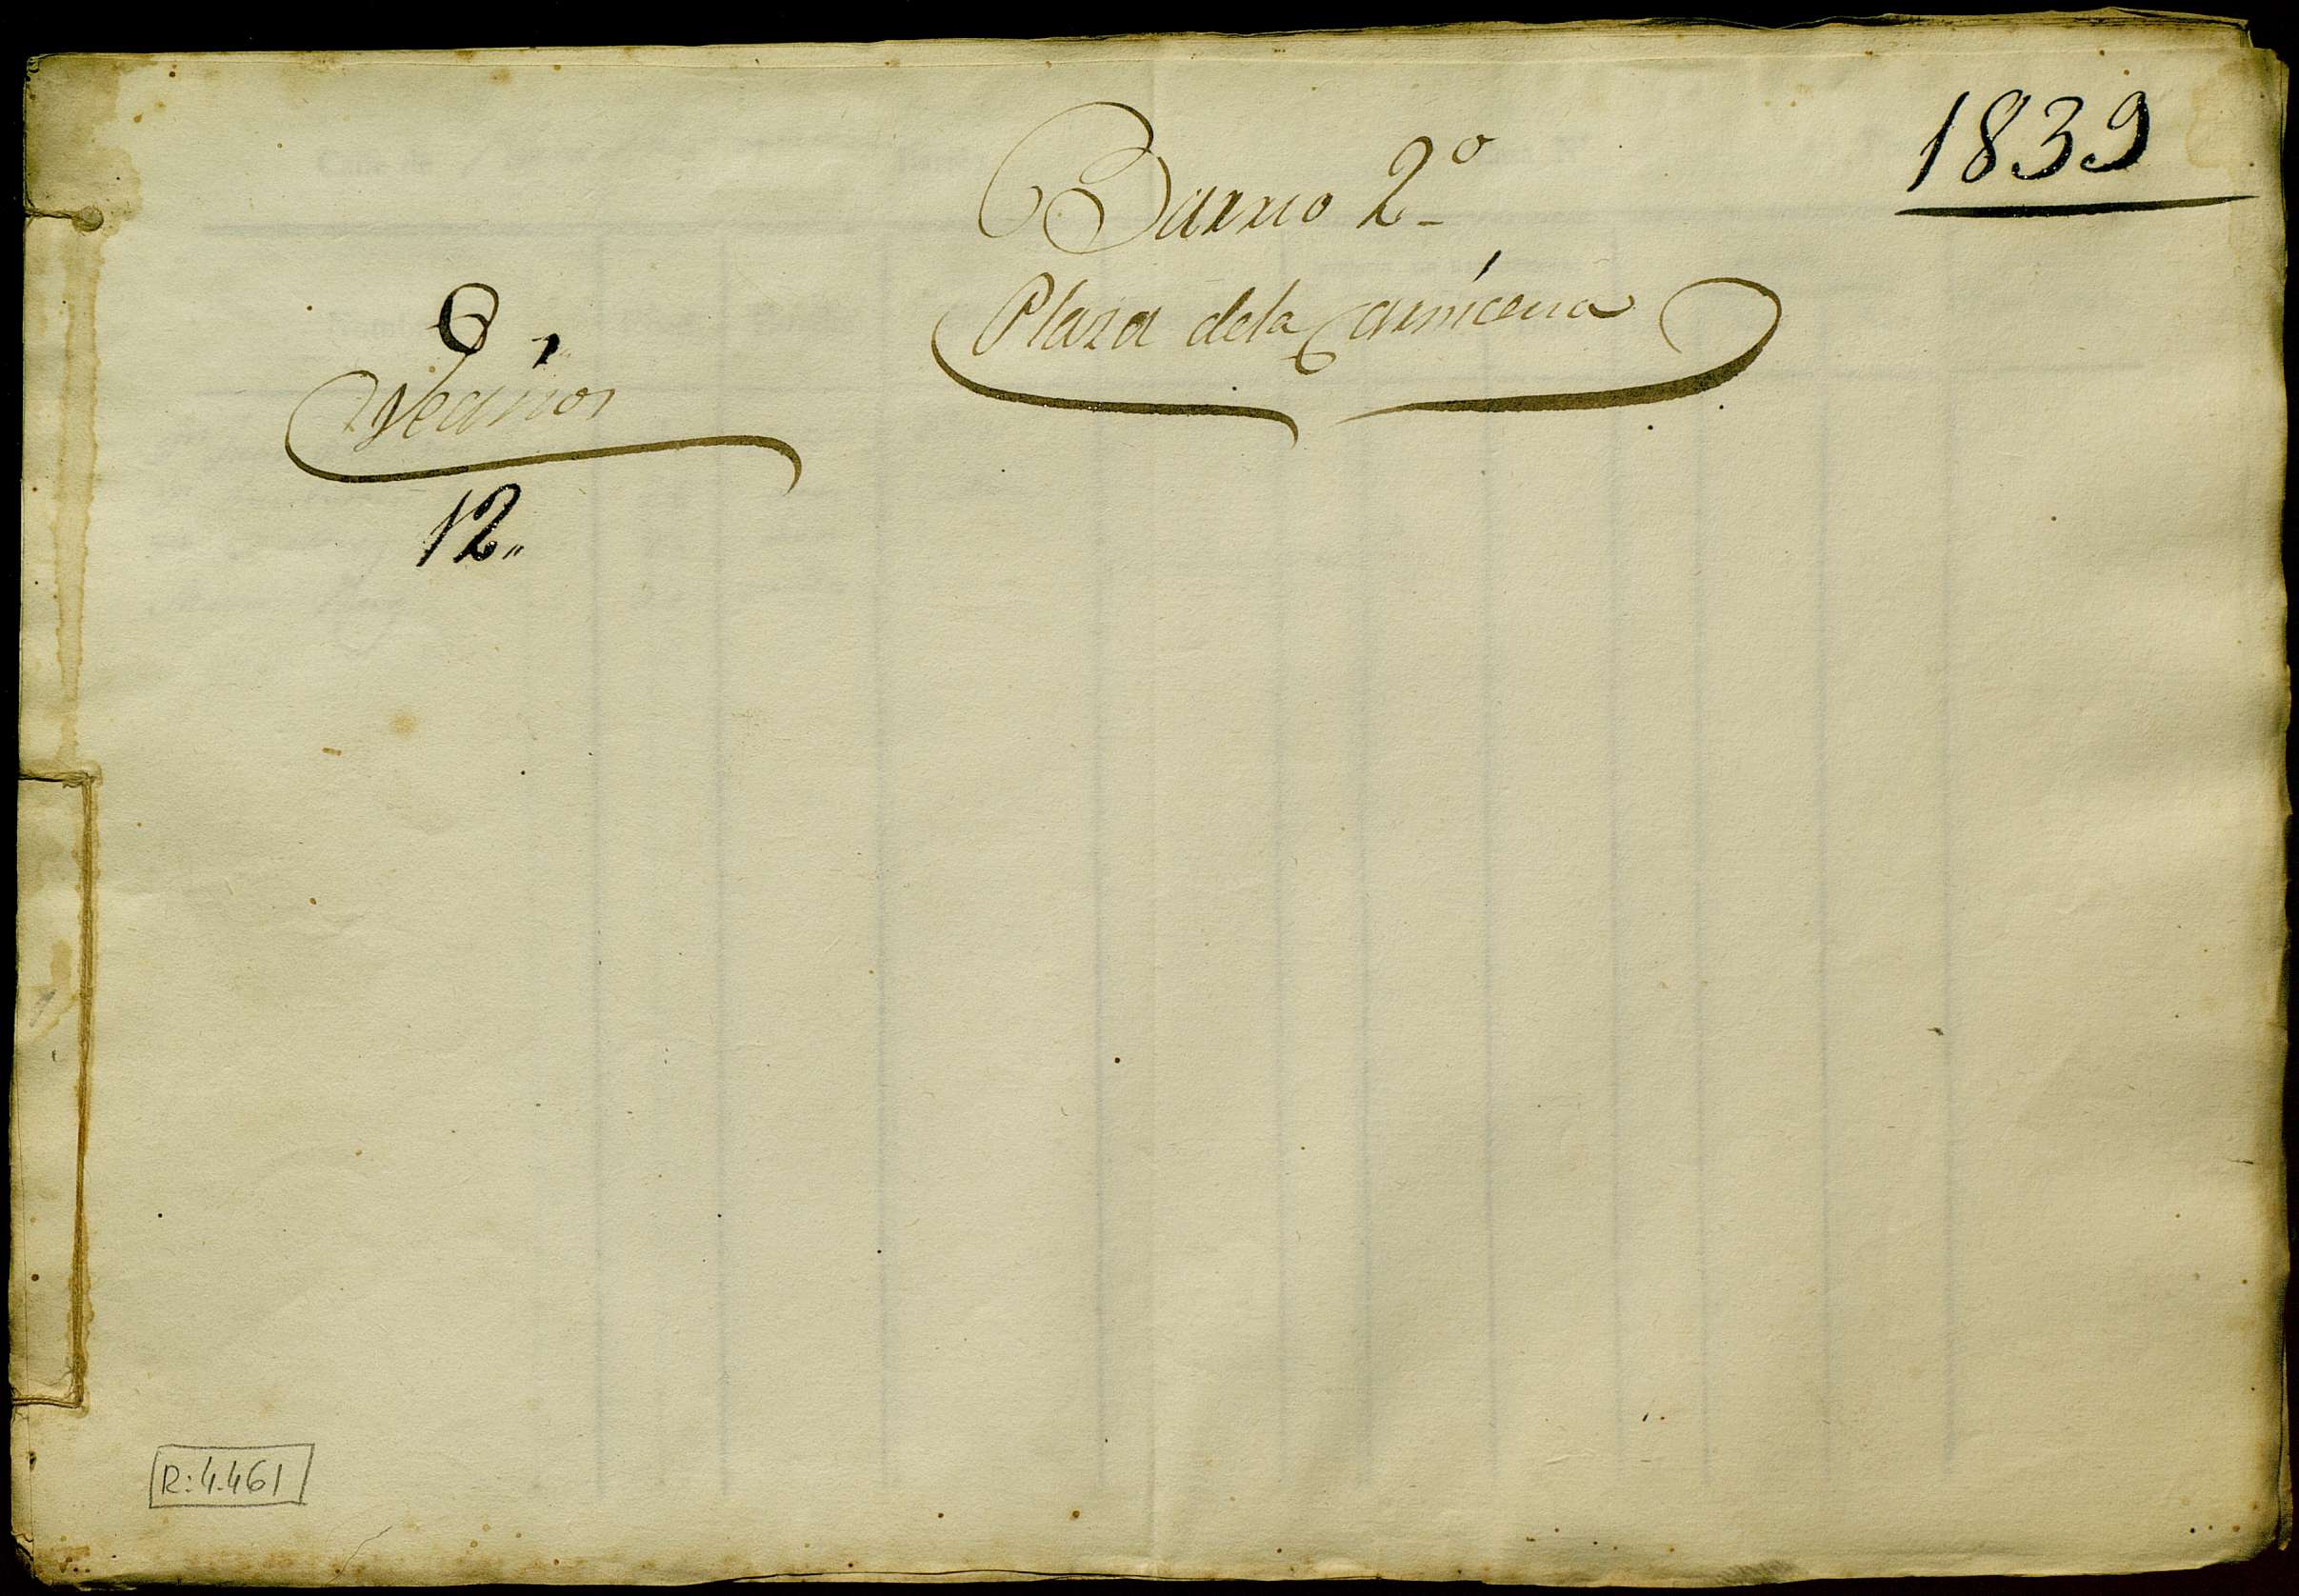 1839
Barrio 2º
Plaza dela Carníceria
Vecinos
12.,
R: 4.461